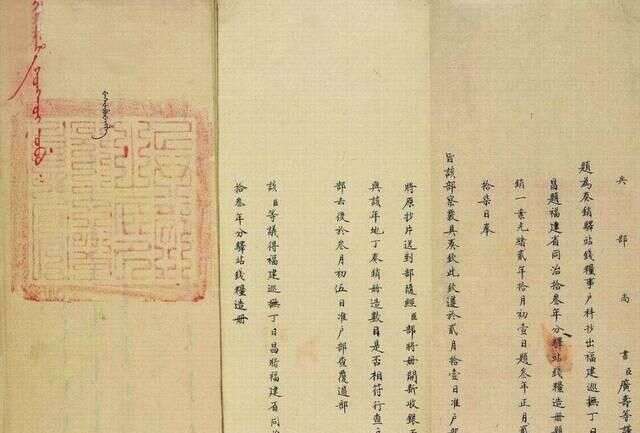 兵部尚書臣廣壽等謹
題為奏銷驛站錢糧事户科抄出福建巡撫丁日
昌題福建省同治拾叁年分驛站錢糧造册題
銷一案光緒貳年拾月初壹日題叁年正月貳
拾柒日奉
旨該部察覈具奏欽此欽遵於貳月拾壹日准户部
將原抄片送到部隨經臣部將册開新收銀
與該年地丁奏銷册造數目是否相符行查户
部去後於叁月初伍日准户部查覆過部
該臣等議得福建巡撫丁日昌將福建省同治
拾叁年分驛站錢糧造册